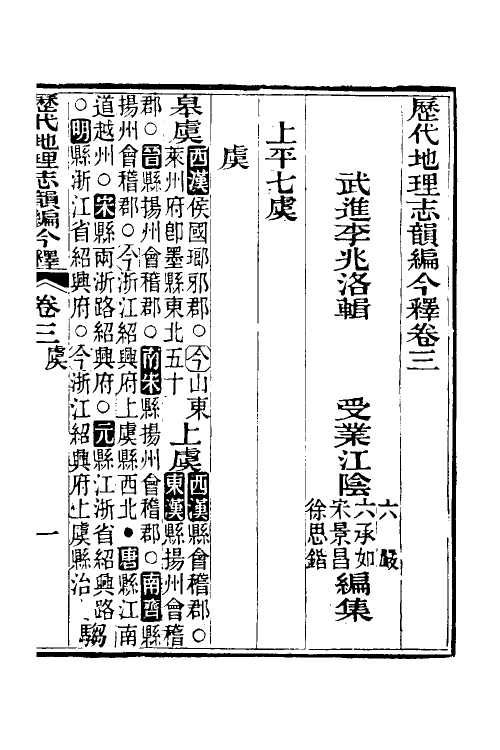 歷代地理志韻編今釋卷三
武進李兆洛輯 受業江陰
六嚴
六承如
宋景昌
徐思鍇
編集
上平七虞
虞
皋虞
西漢侯國瑯邪郡○今山東
萊州府卽墨縣東北五十
上虞
西漢縣會稽郡○
東漢縣揚州會稽
郡○晉縣揚州會稽郡○南宋縣揚州會稽郡○南齊縣
揚州會稽郡○今浙江紹興府上虞縣西北●唐縣江南
道越州○宋縣兩浙路紹興府○元縣江浙省紹興路
○明縣浙江省紹興府○今浙江紹興府上虞縣治
騶
歷代地理志韻編今釋 卷三 虞 一